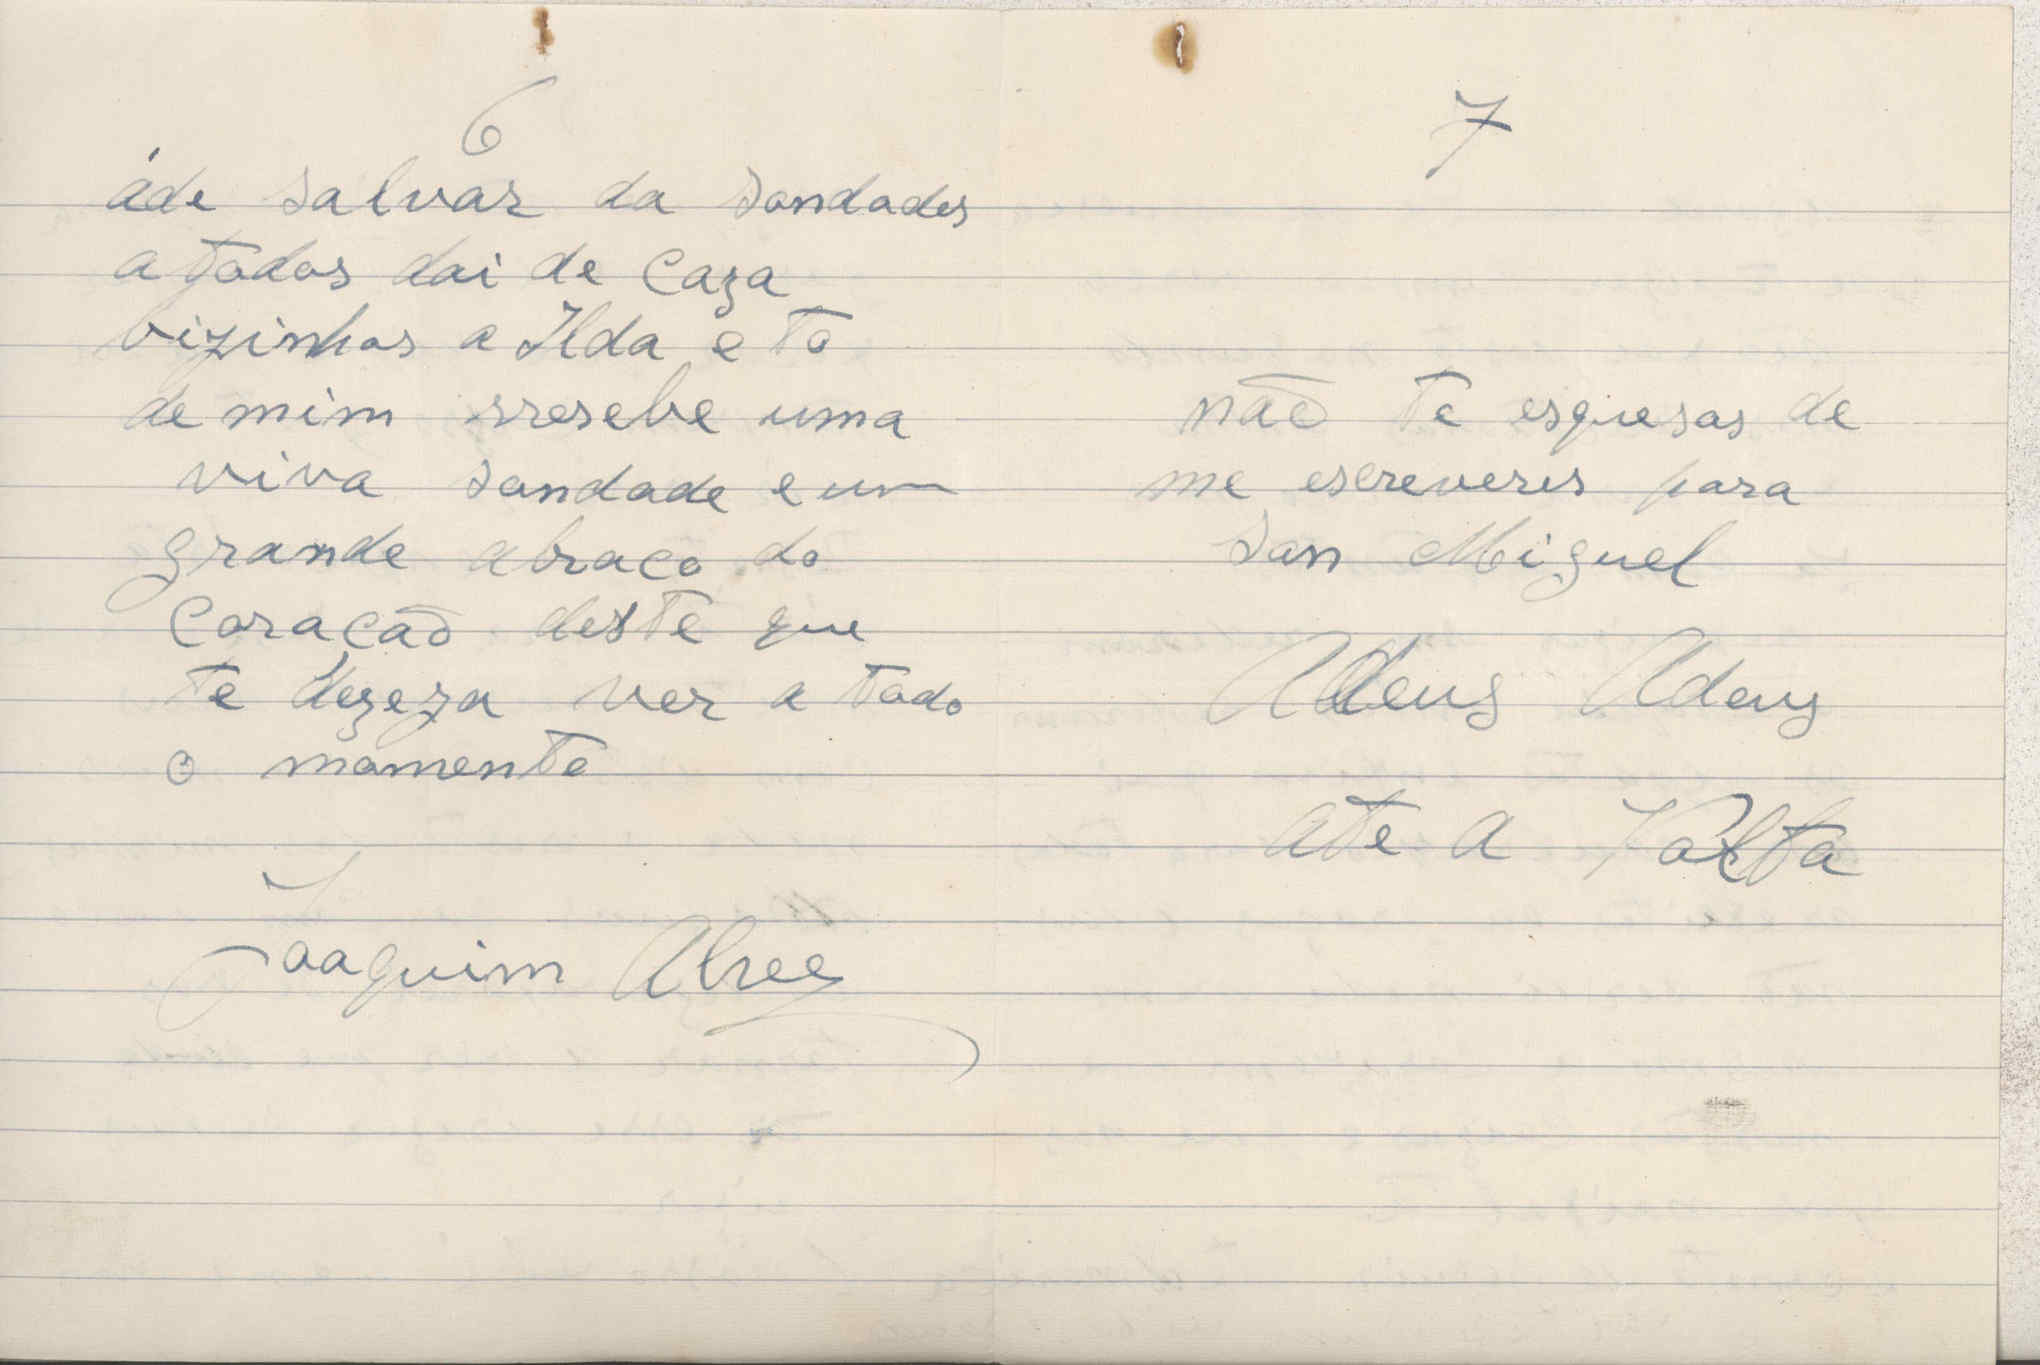 6
áde salvar da saudades
a todos dai de Caza
vizinhos a Ilda e to
de mim rresebe uma
viva saudade e um
grande abraco do
Coracão deste que
te dezeza ver a todo
o momento
Joaquim Alves
7
não te esquesas de
me escreveres para
San Miguel
Adeus Adeus
ate a Volta